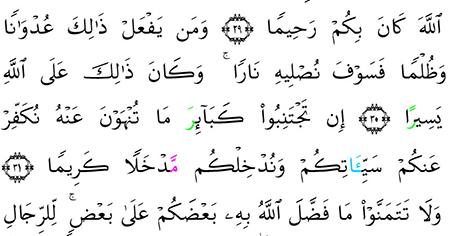 ٱللَّهَ كَانَ بِكُمْ رَحِيمًا ﴿٢٩﴾ وَمَن يَفْعَلْ ذَٰلِكَ عُدْوَٰنًا
وَظُلْمًا فَسَوْفَ نُصْلِيهِ نَارًا ۚ وَكَانَ ذَٰلِكَ عَلَى ٱللَّهِ
يَسِيرًا ﴿٣٠﴾ إِن تَجْتَنِبُوا۟ كَبَآئِرَ مَا تُنْهَوْنَ عَنْهُ نُكَفِّرْ
عَنكُمْ سَيِّـَٔاتِكُمْ وَنُدْخِلْكُم مَّدْخَلًا كَرِيمًا ﴿٣١﴾
وَلَا تَتَمَنَّوْا۟ مَا فَضَّلَ ٱللَّهُ بِهِۦ بَعْضَكُمْ عَلَىٰ بَعْضٍ ۚ لِّلرِّجَالِ